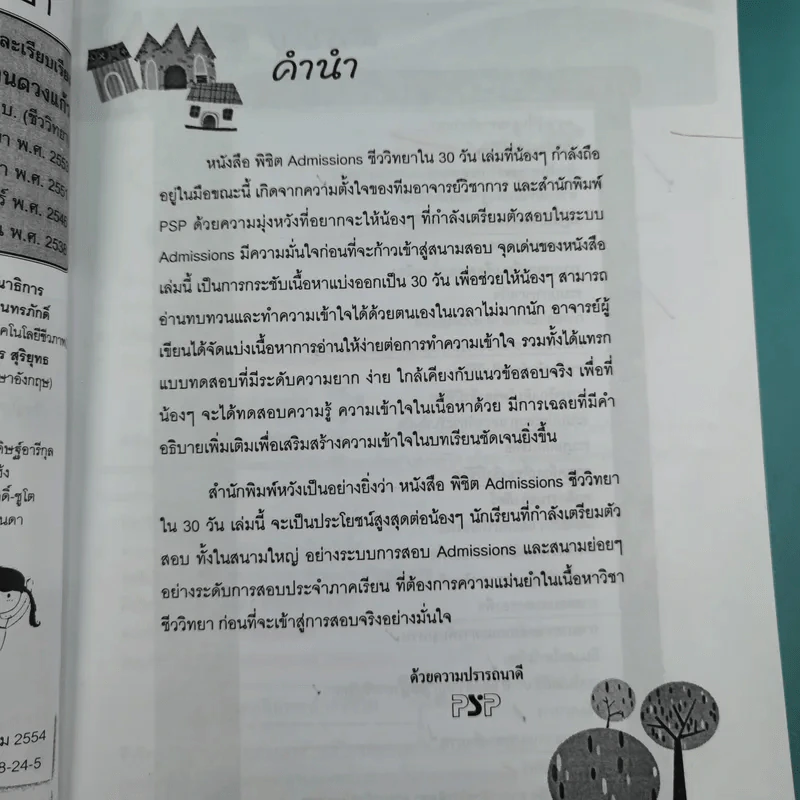 ละเรียบเรีย
นดวงแก้
บ. (ชีววิทย
พ.ศ. 2553
พ.ศ. 2551
พ.ศ. 2546
พ.ศ. 2538
นาธิการ
นทรภักดิ์
คโนโลยีชีวภาพ
ร สุริยุทธ
ษาอังกฤษ)
ดิษฐ์อารีกุล
ดิ์-ชูโต
นดา
ม 2554
8-24-5
คำนำ
หนังสือ พิชิต Admissions ชีววิทยาใน 30 วัน เล่มที่น้องๆ กำลังถือ
อยู่ในมือขณะนี้ เกิดจากความตั้งใจของทีมอาจารย์วิชาการ และสำนักพิมพ์
PSP ด้วยความมุ่งหวังที่อยากจะให้น้องๆ ที่กำลังเตรียมตัวสอบในระบบ
Admissions มีความมั่นใจก่อนที่จะก้าวเข้าสู่สนามสอบ จุดเด่นของหนังสือ
เล่มนี้ เป็นการกระชับเนื้อหาแบ่งออกเป็น 30 วัน เพื่อช่วยให้น้องๆ สามารถ
อ่านทบทวนและทำความเข้าใจได้ด้วยตนเองในเวลาไม่มากนัก อาจารย์ผู้
เขียนได้จัดแบ่งเนื้อหาการอ่านให้ง่ายต่อการทำความเข้าใจ รวมทั้งได้แทรก
แบบทดสอบที่มีระดับความยาก ง่าย ใกล้เคียงกับแนวข้อสอบจริง เพื่อที่
น้องๆ จะได้ทดสอบความรู้ ความเข้าใจในเนื้อหาด้วย มีการเฉลยที่มีคำ
อธิบายเพิ่มเติมเพื่อเสริมสร้างความเข้าใจในบทเรียนชัดเจนยิ่งขึ้น
สำนักพิมพ์หวังเป็นอย่างยิ่งว่า หนังสือ พิชิต Admissions ชีววิทยา
ใน 30 วัน เล่มนี้ จะเป็นประโยชน์สูงสุดต่อน้องๆ นักเรียนที่กำลังเตรียมตัว
สอบ ทั้งในสนามใหญ่ อย่างระบบการสอบ Admissions และสนามย่อยๆ
อย่างระดับการสอบประจำภาคเรียน ที่ต้องการความแม่นยำในเนื้อหาวิชา
ชีววิทยา ก่อนที่จะเข้าสู่การสอบจริงอย่างมั่นใจ
ด้วยความปรารถนาดี
PSP